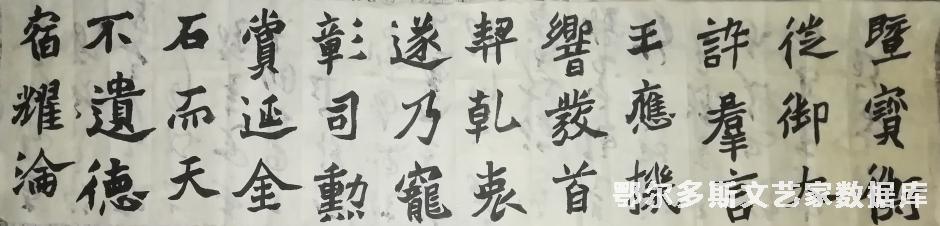 暨寶衡
徙御大
許羣言
王應機
響發首
契乾衷
遂乃寵
彰司勳
賞延金
石而天
不遺德
宿耀淪
鄂尔多斯文艺家数据库